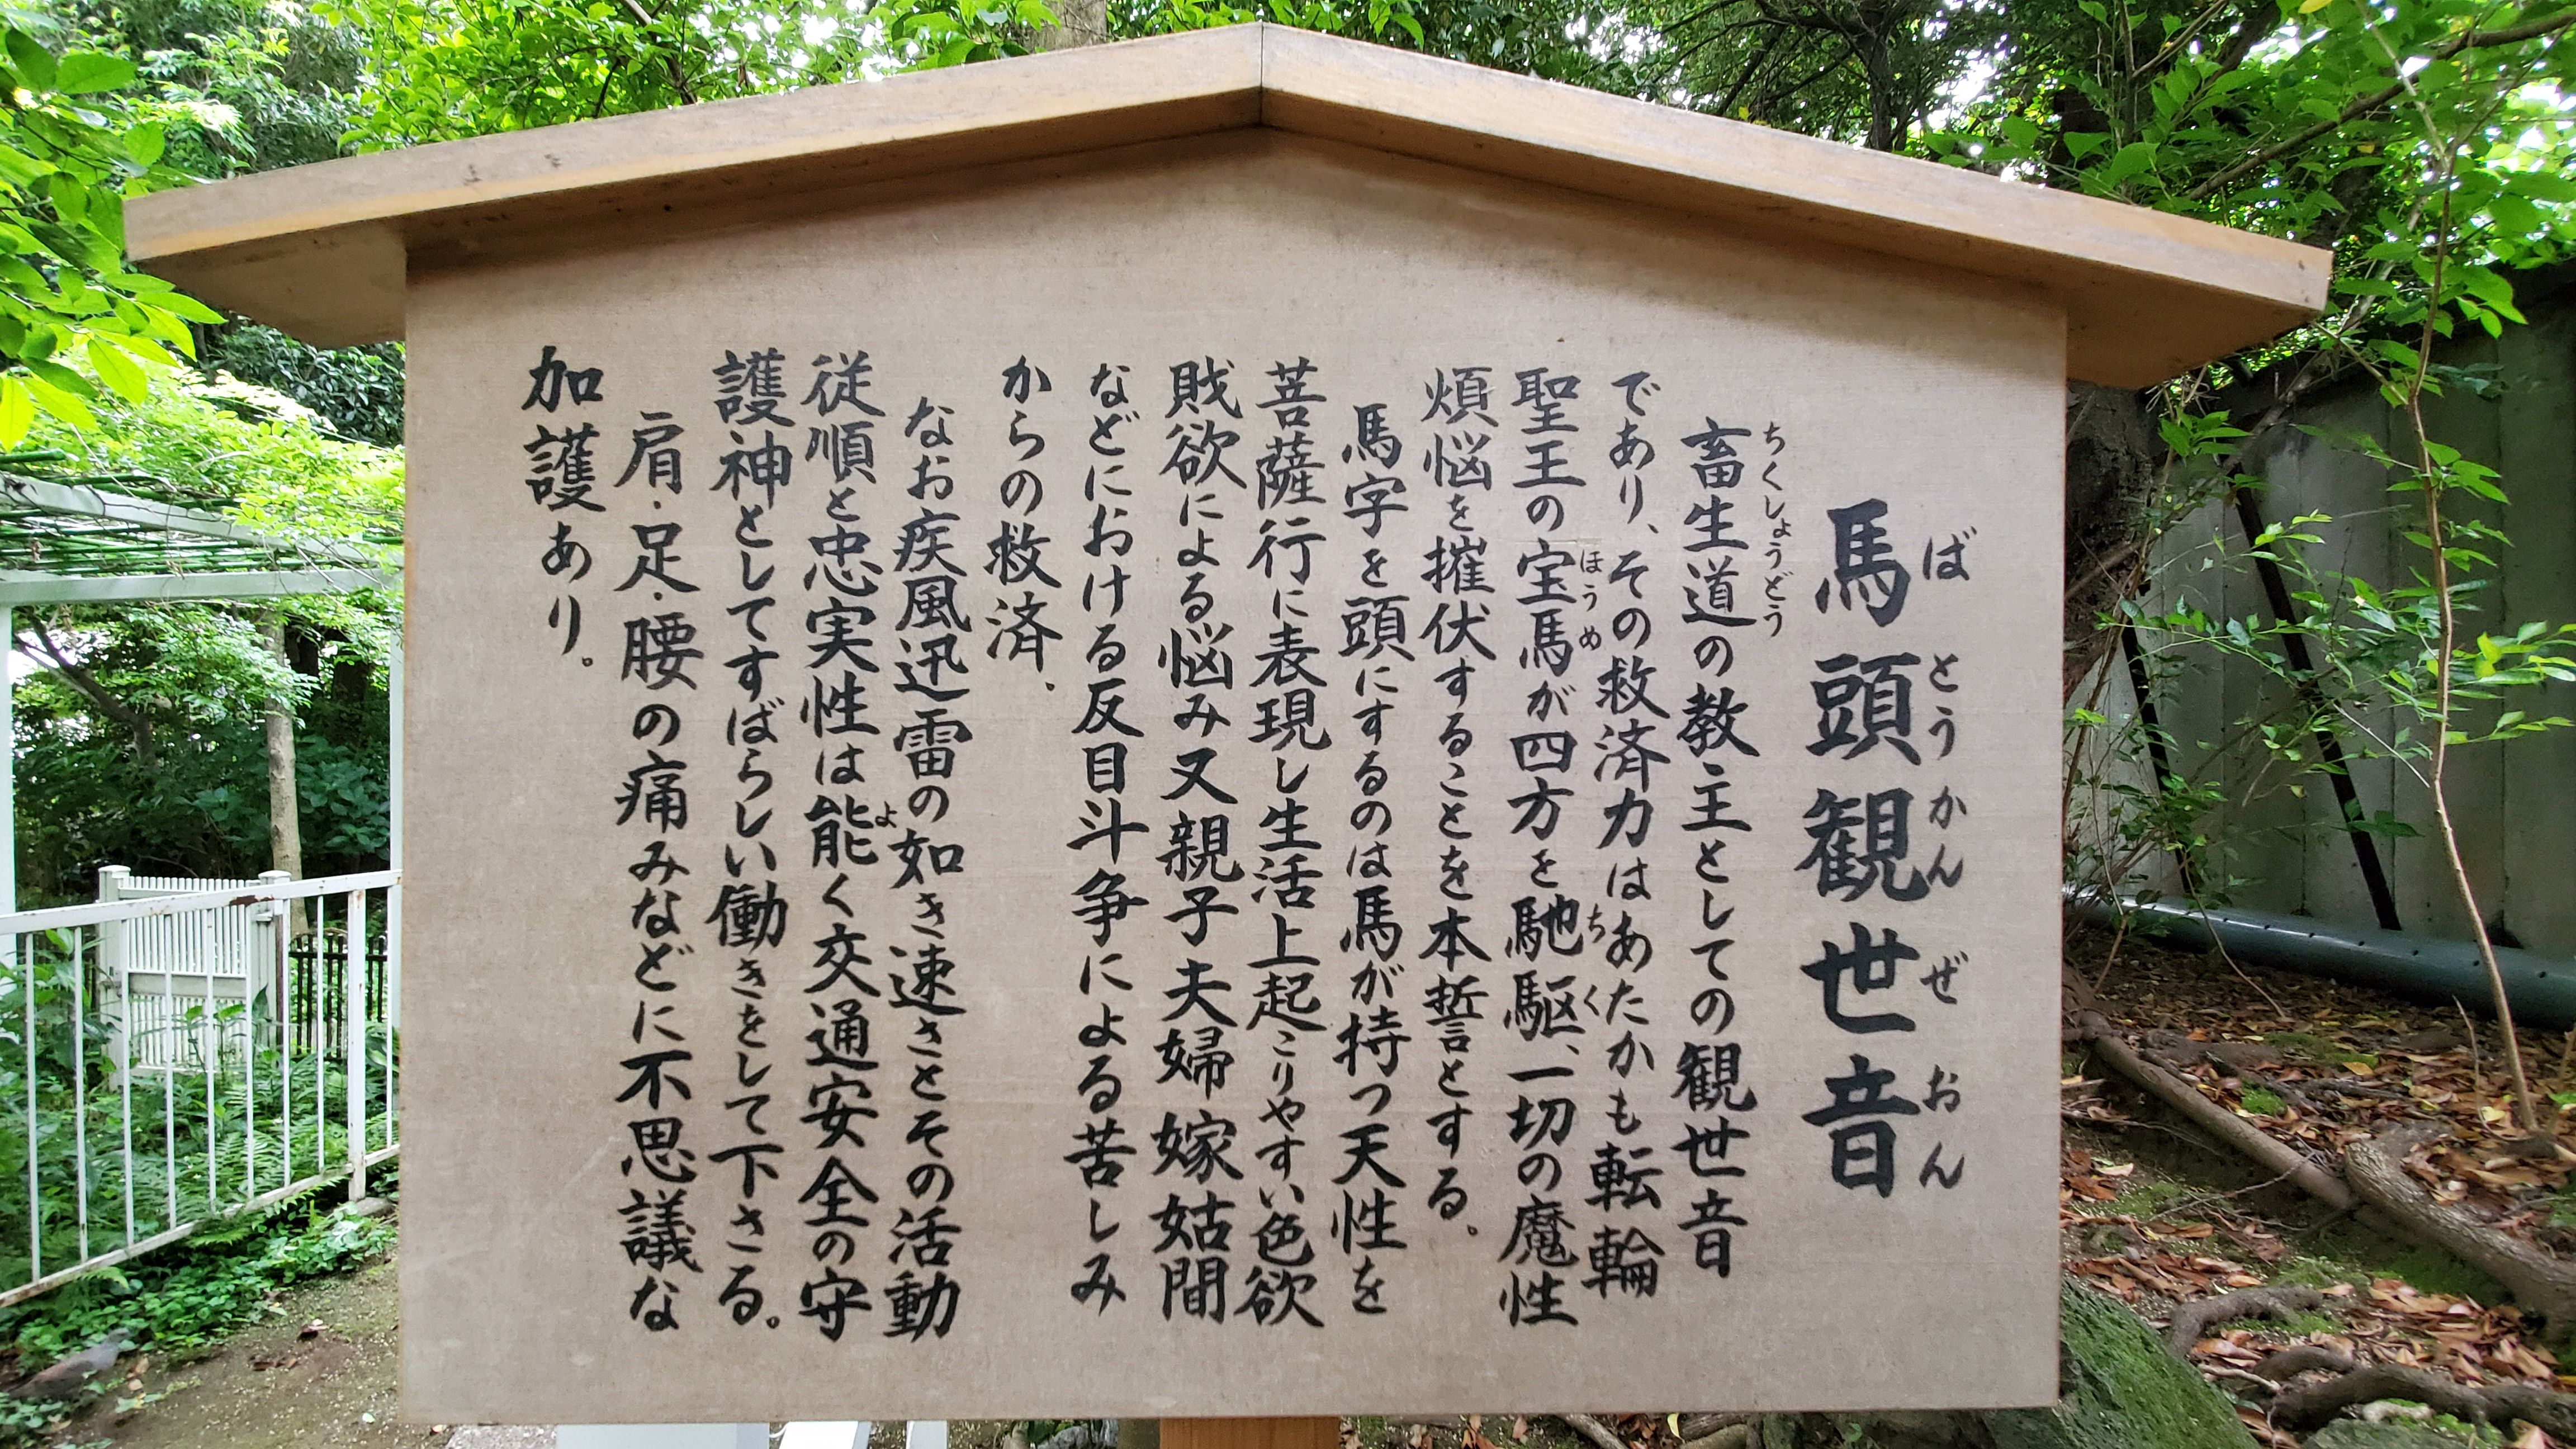 馬頭観世音
ばとうかんぜおん
畜生道の教主としての観世音
ちくしょうどう
であり、その救済力はあたかも転輪
聖王の宝馬が四方を馳駆、一切の魔性
ほうめ
ちく
煩悩を摧伏することを本誓とする。
馬字を頭にするのは馬が持つ天性を
菩薩行に表現し生活上起こりやすい色欲
財欲による悩み又親子夫婦嫁姑間
などにおける反目斗争による苦しみ
からの救済.
なお疾風迅雷の如き速さとその活動
従順と忠実性は能く交通安全の守
よ
護神としてすばらしい働きをして下さる。
肩・足・腰の痛みなどに不思議な
加護あり。